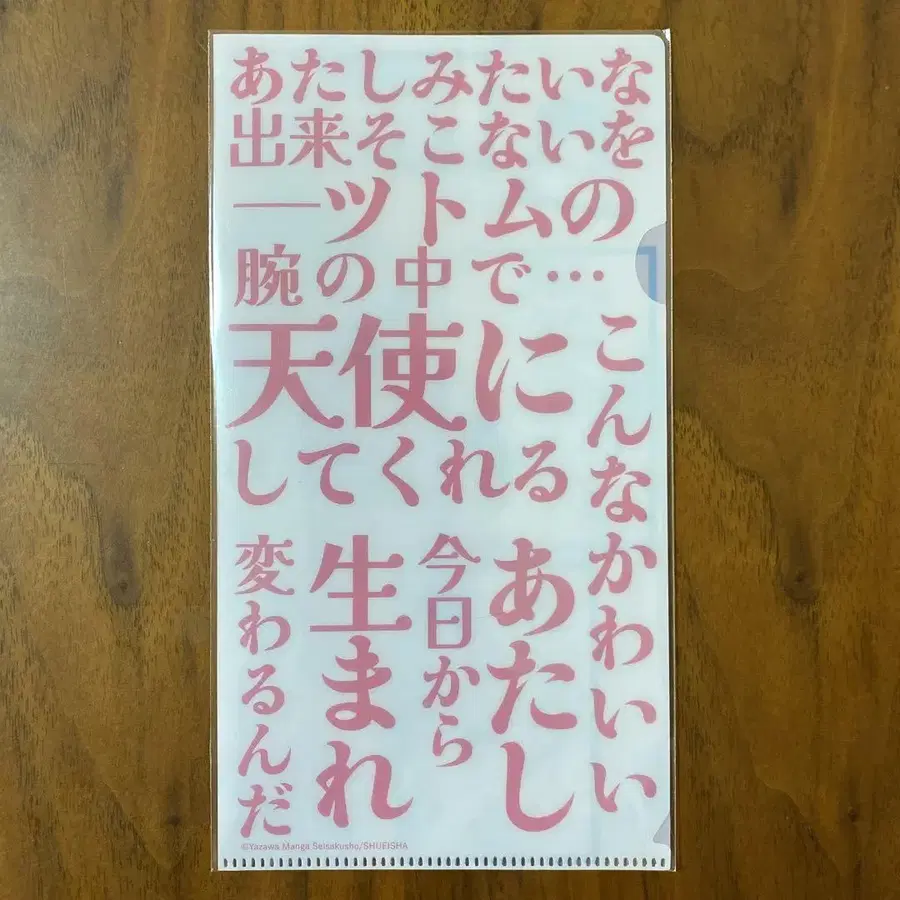 あたしみたいな
出来そこないを
―ツトムの
腕の中で…
天使に
してくれる
こんなかわいい
あたし
今日から
生まれ
変わるんだ
©Yazawa Manga Seisakusho/SHUEISHA